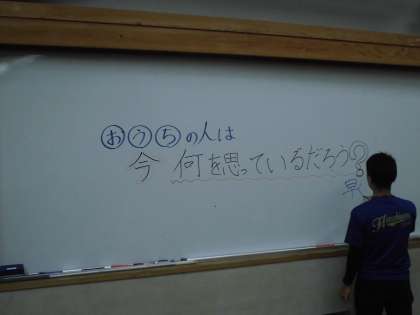 おうちの人は
今 何を思っているだろう?
早